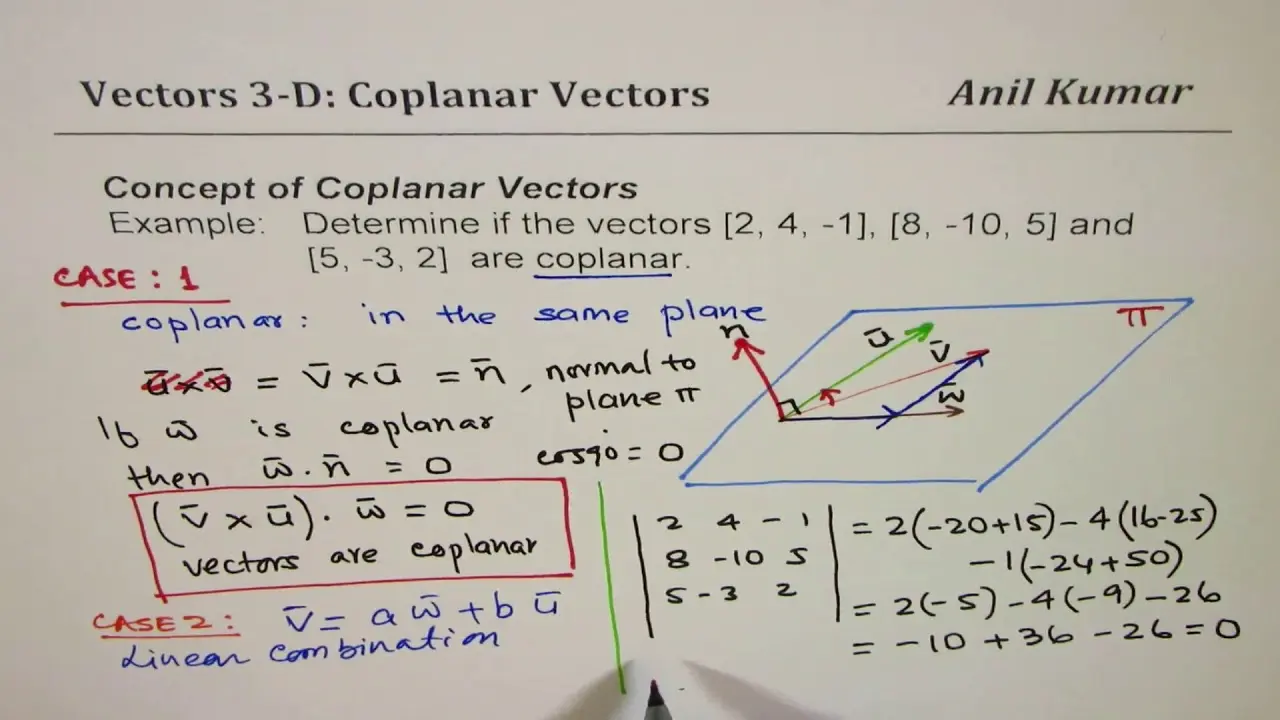 Vectors 3-D: Coplanar Vectors
Anil Kumar
Concept of Coplanar Vectors
Example: Determine if the vectors [2, 4, -1], [8, -10, 5] and
[5, -3, 2] are coplanar.
CASE : 1
coplanar : in the same plane
u̅ × v̅ = v̅ × u̅ = n̅ , normal to
plane π
If w̅ is coplanar
then w̅ . n̅ = 0
cos90 = 0
(v̅ × u̅) . w̅ = 0
vectors are coplanar
CASE 2 : v̅ = a w̅ + b u̅
Linear combination
n
u̅
v̅
w̅
π
| 2 4 -1 | = 2(-20+15) - 4(16-25)
8 -10 5 - 1(-24+50)
5 -3 2 = 2(-5) - 4(-9) - 26
= -10 + 36 - 26 = 0